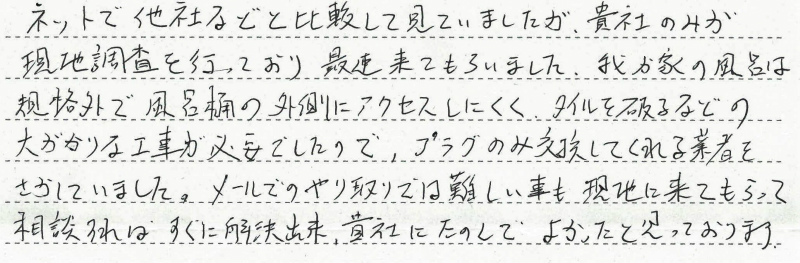 ネットで他社などと比較して見ていましたが、貴社のみが
現地調査を行っており最速来てもらいました。我が家の風呂は
規格外で風呂桶の外側にアクセスしにくく、タイルを破るなどの
大がかりな工事が必要でしたので、プラグのみ交換してくれる業者を
さがしていました。メールでのやり取りでは難しい事も現地に来てもらって
相談すればすぐに解決出来、貴社にたのんでよかったと思っております。